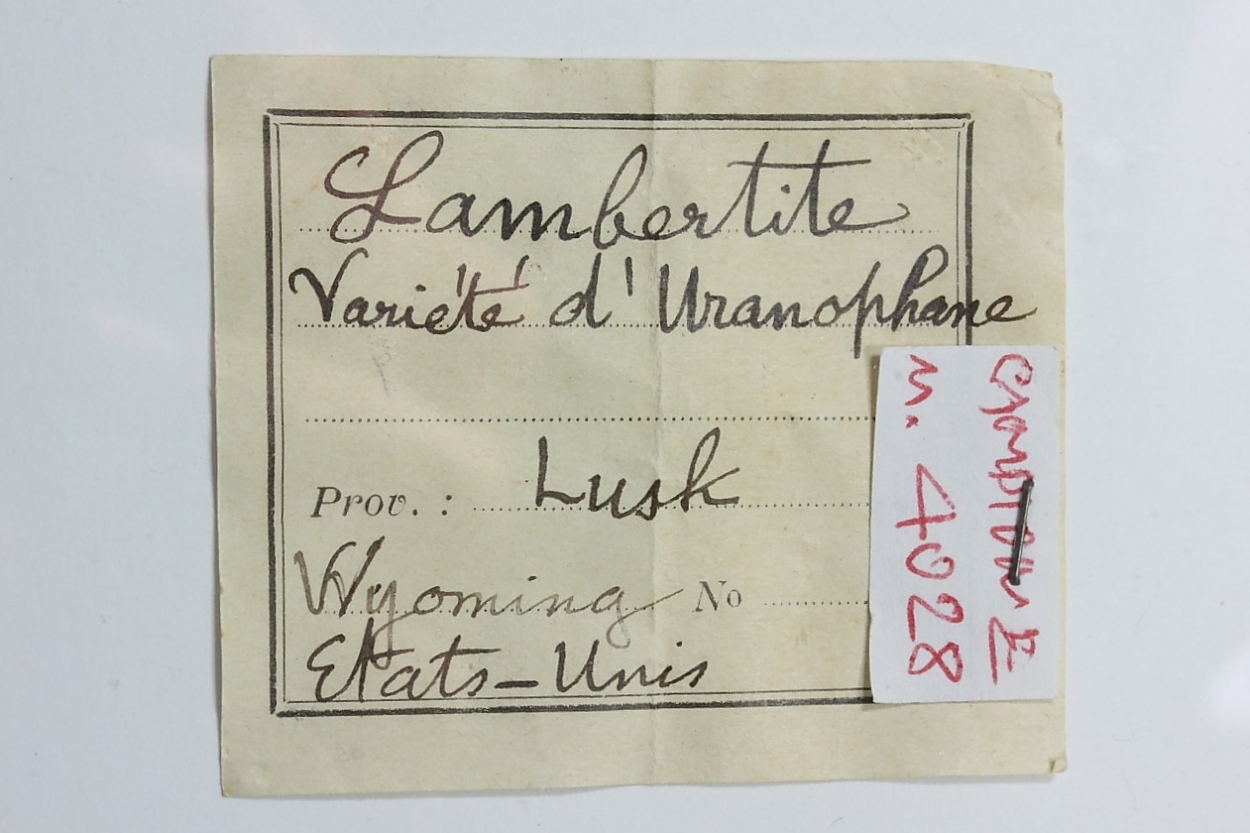 Lambertite
Variété d'Uranophane
Prov. : Lusk
Wyoming No
Etats-Unis
CAMPIONE
N. 4028